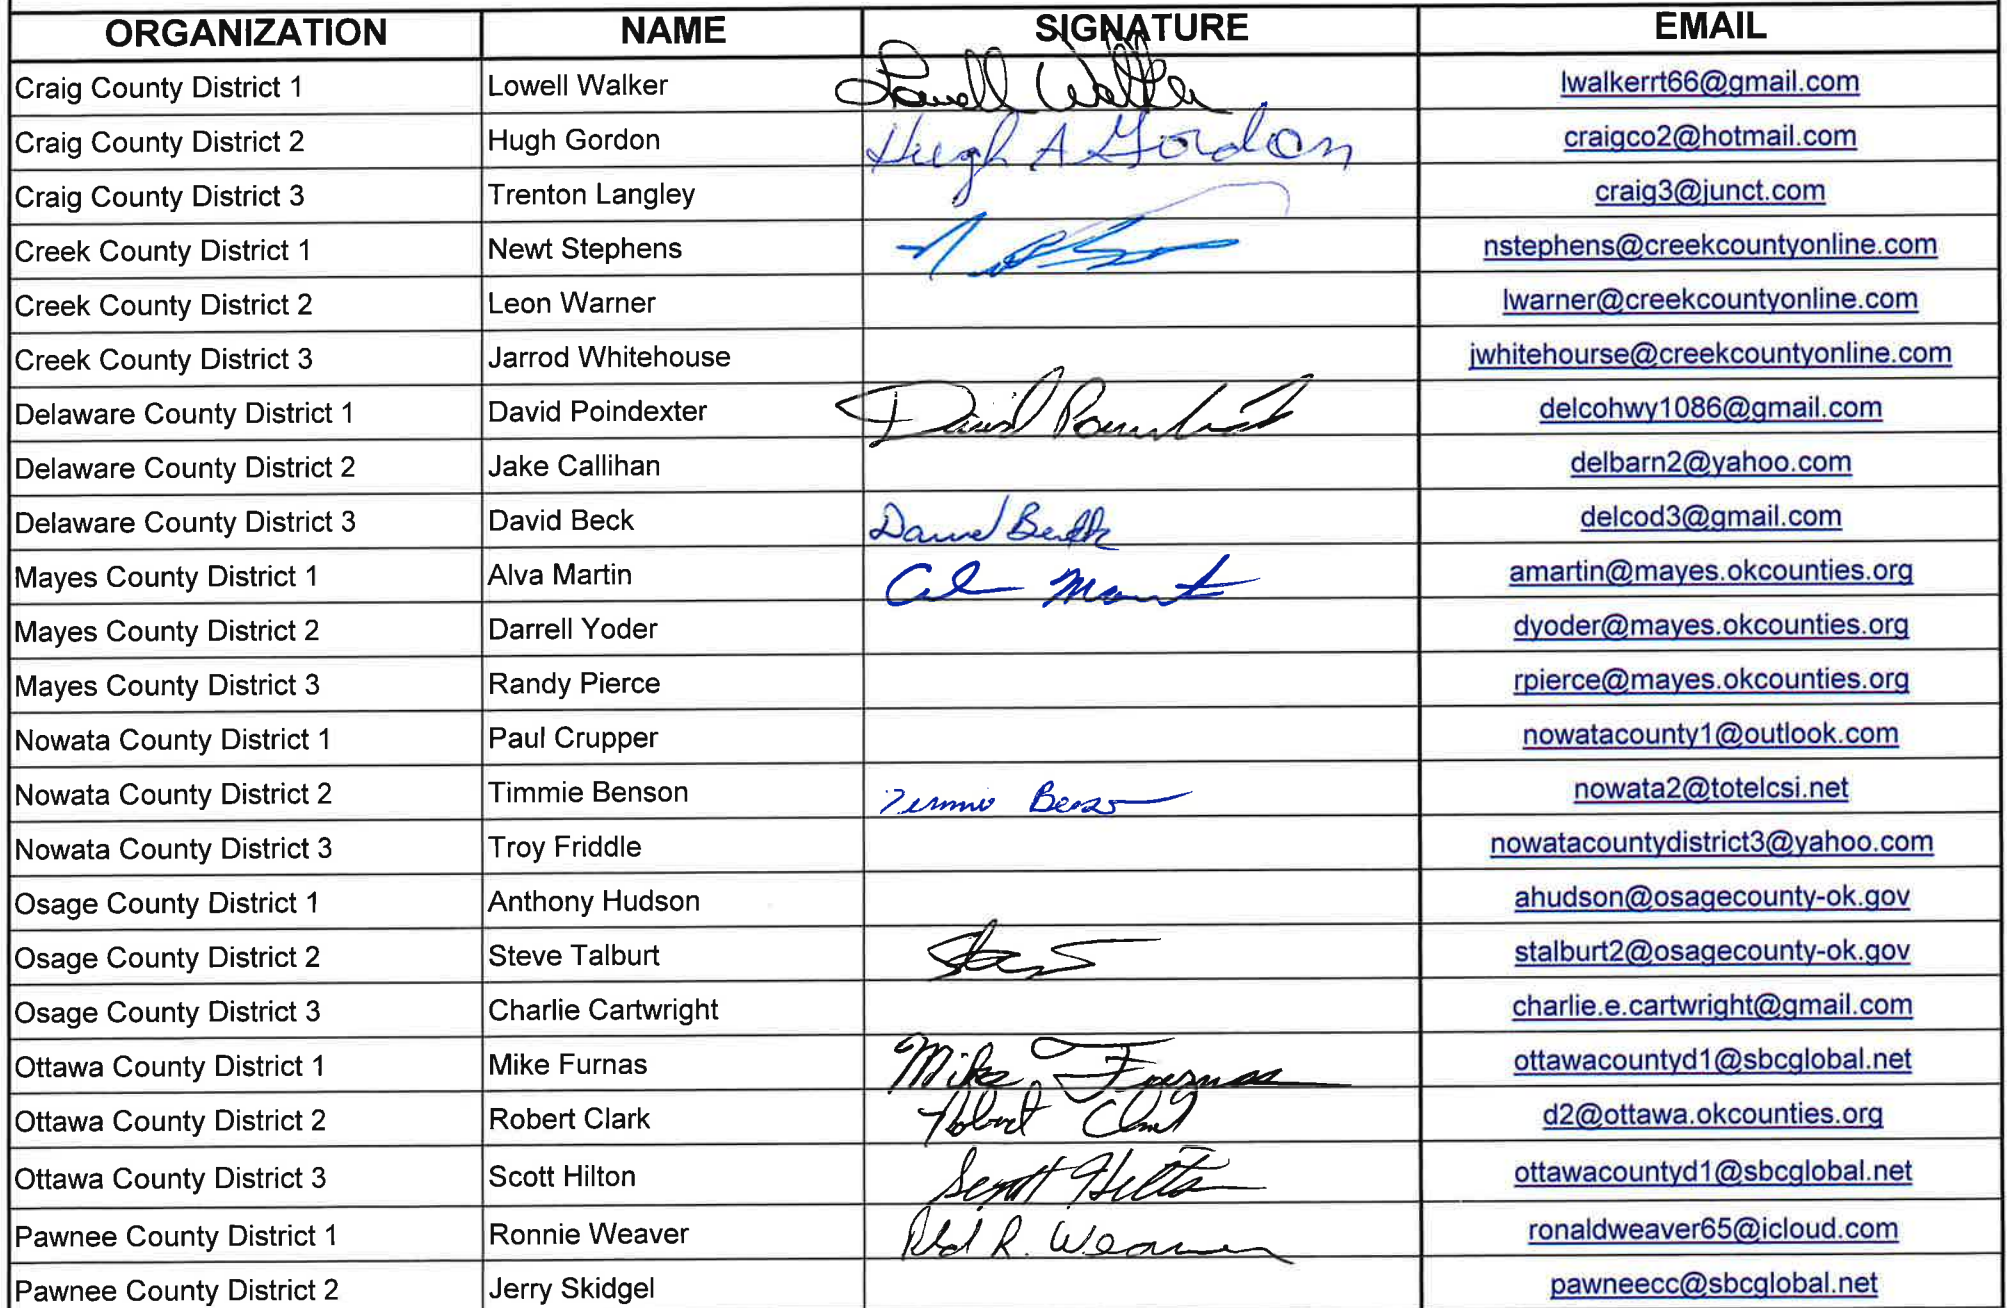 ORGANIZATION NAME SIGNATURE EMAIL
Craig County District 1 Lowell Walker Lowell Walker lwalkerrt66@gmail.com
Craig County District 2 Hugh Gordon Hugh A Gordon craigco2@hotmail.com
Craig County District 3 Trenton Langley craig3@junct.com
Creek County District 1 Newt Stephens nstephens@creekcountyonline.com
Creek County District 2 Leon Warner lwarner@creekcountyonline.com
Creek County District 3 Jarrod Whitehouse jwhitehourse@creekcountyonline.com
Delaware County District 1 David Poindexter David Poindexter delcohwy1086@gmail.com
Delaware County District 2 Jake Callihan delbarn2@yahoo.com
Delaware County District 3 David Beck David Beck delcod3@gmail.com
Mayes County District 1 Alva Martin amartin@mayes.okcounties.org
Mayes County District 2 Darrell Yoder dyoder@mayes.okcounties.org
Mayes County District 3 Randy Pierce rpierce@mayes.okcounties.org
Nowata County District 1 Paul Crupper nowatacounty1@outlook.com
Nowata County District 2 Timmie Benson Timmie Benson nowata2@totelcsi.net
Nowata County District 3 Troy Friddle nowatacountydistrict3@yahoo.com
Osage County District 1 Anthony Hudson ahudson@osagecounty-ok.gov
Osage County District 2 Steve Talburt stalburt2@osagecounty-ok.gov
Osage County District 3 Charlie Cartwright charlie.e.cartwright@gmail.com
Ottawa County District 1 Mike Furnas Mike Furnas ottawacountyd1@sbcglobal.net
Ottawa County District 2 Robert Clark Robert Clark d2@ottawa.okcounties.org
Ottawa County District 3 Scott Hilton Scott Hilton ottawacountyd1@sbcglobal.net
Pawnee County District 1 Ronnie Weaver R. Weaver ronaldweaver65@icloud.com
Pawnee County District 2 Jerry Skidgel pawneecc@sbcglobal.net